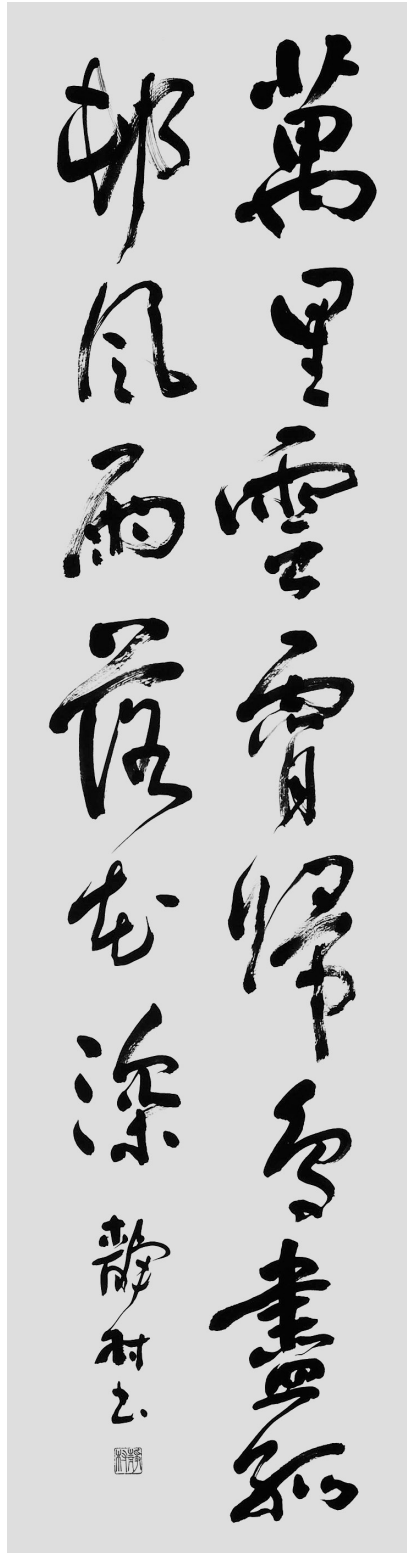 萬里雲霄歸鳥盡孤
邨風雨落花深
靜村書